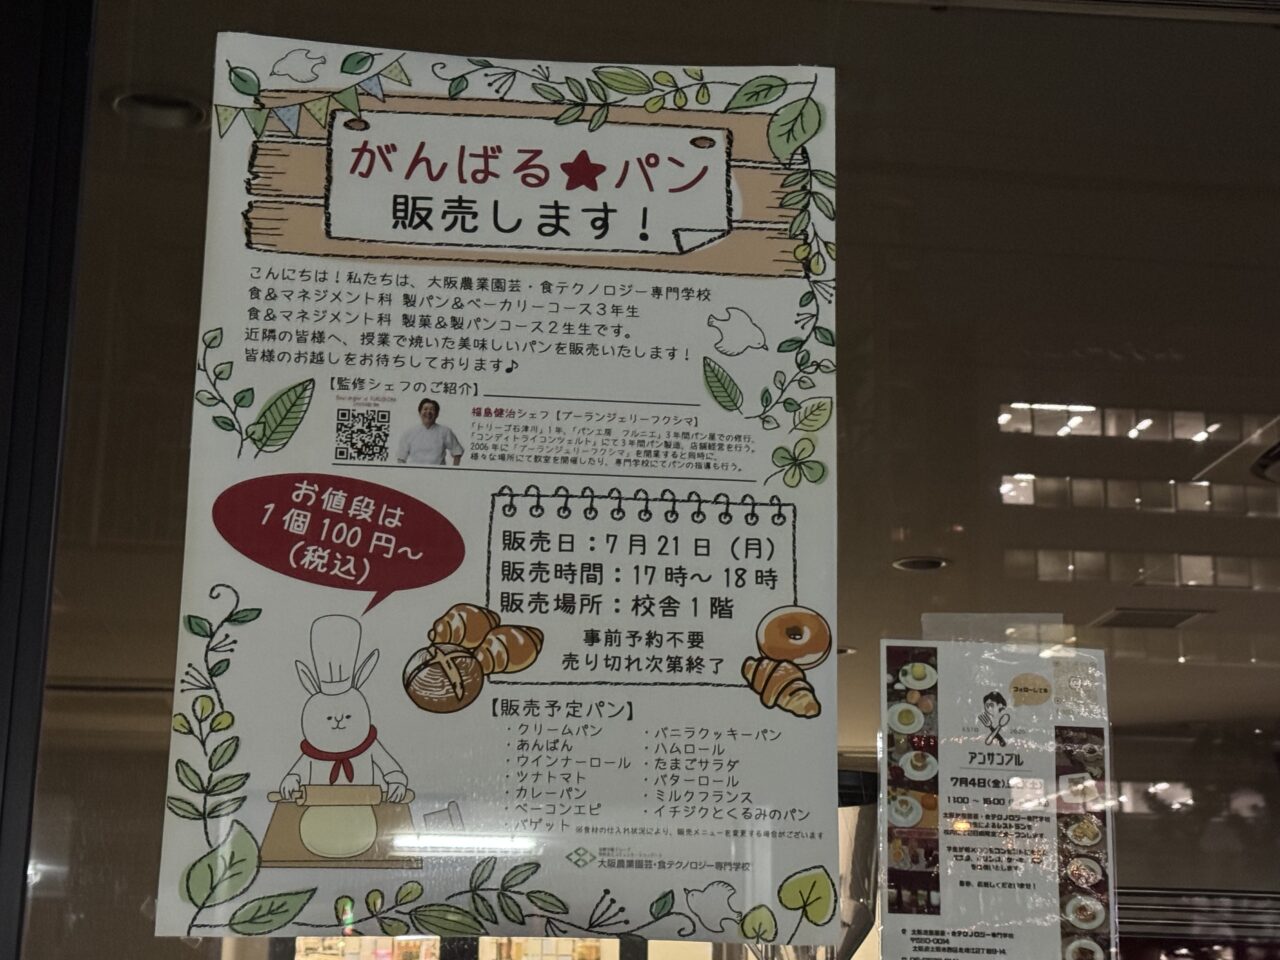 がんばる★パン
販売します！
こんにちは！私たちは、大阪農業園芸・食テクノロジー専門学校
食＆マネジメント科 製パン＆ベーカリーコース３年生
食＆マネジメント科 製菓＆製パンコース２生生です。
近隣の皆様へ、授業で焼いた美味しいパンを販売いたします！
皆様のお越しをお待ちしております♪
【監修シェフのご紹介】
福島健治シェフ【ブーランジェリーフクシマ】
「トリーゴ石津川」１年、「パン工房　フルニエ」３年間パン屋での修行、
「コンディトライコンツェルト」にて３年間パン製造、店舗経営を行う。
2006年に「ブーランジェリーフクシマ」を開業すると同時に、
様々な場所にて教室を開催したり、専門学校にてパンの指導も行う。
お値段は
1個100円～
(税込)
販売日：7月21日（月）
販売時間：17時～18時
販売場所：校舎1階
事前予約不要
売り切れ次第終了
【販売予定パン】
・クリームパン
・あんぱん
・ウインナーロール
・ツナトマト
・カレーパン
・ベーコンエピ
・バゲット
・バニラクッキーパン
・ハムロール
・たまごサラダ
・バターロール
・ミルクフランス
・イチジクとくるみのパン
※食材の仕入れ状況により、販売メニューを変更する場合がございます
大阪農業園芸・食テクノロジー専門学校
フォローしてね
アンサンブル
7月4日(金)
11:00 ～ 16:00
大阪農業園芸・食テクノロジー専門学校